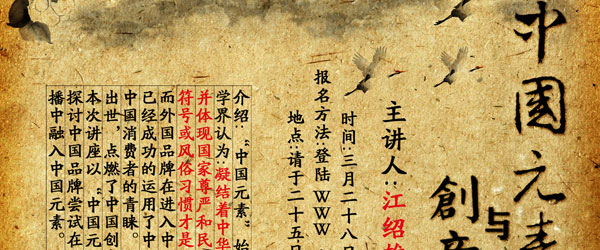 中國元素
与
創
主讲人：江绍
时间：三月二十八
报名方法：登陆WWW
地点：请于二十五
介绍：“中国元素”始
学界认为：凝结着中华
并体现国家尊严和民
符号或风俗习惯才是
而外国品牌在进入中
已经成功的运用了中
中国消费者的青睐。
出世，点燃了中国创
本次讲座以“中国元
探讨中国品牌尝试在
播中融入中国元素。